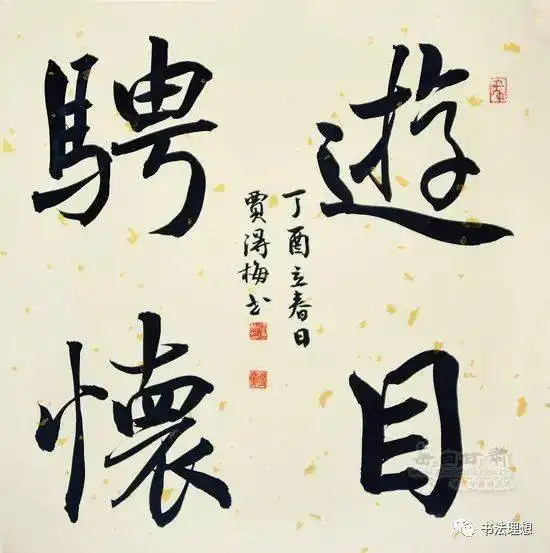 遊目
騁懷
丁酉立春日
賈淂梅书
书法理想